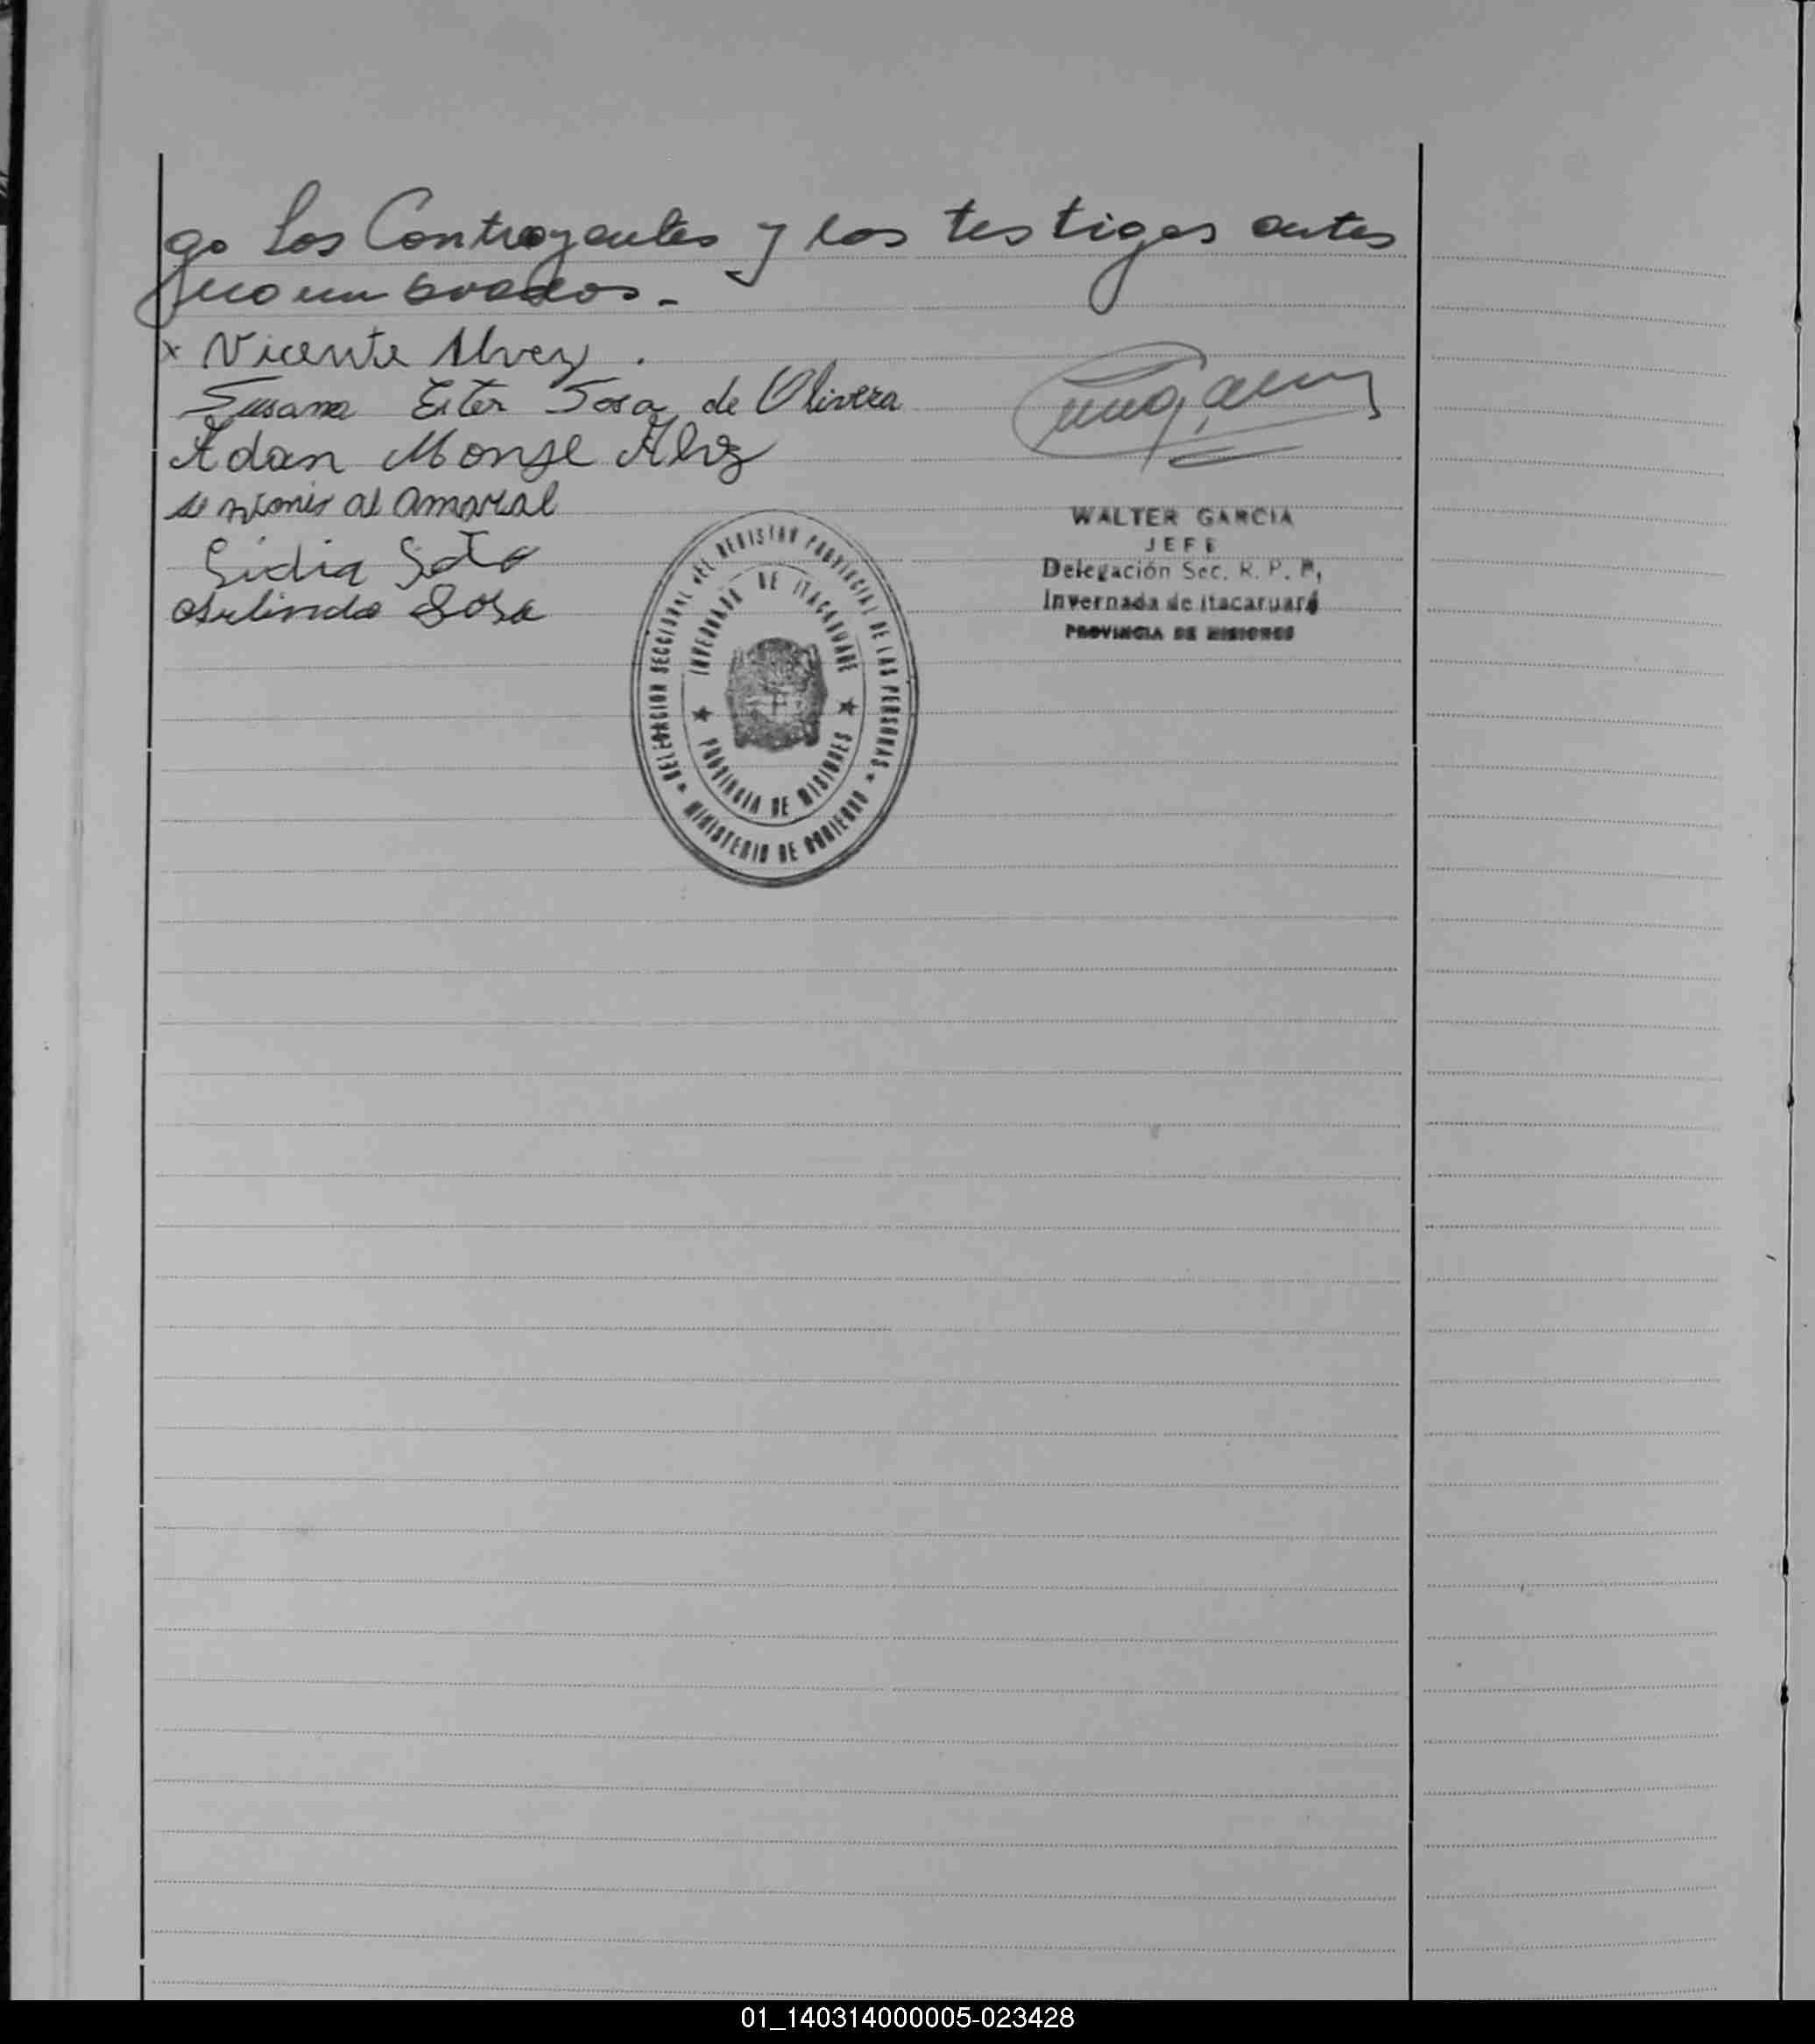 go Los Contrayentes y los testigos antes
mencionados.-
x Vicente Alvez .
Susana Ester Sosa de Olivera
Adan Monge Alvez
al amaral
Lidia Soto
Arlindo Sosa
WALTER GARCIA
JEFE
Delegación Sec. R. P. P,
Invernada de Itacaruaré
PROVINCIA DE MISIONES
DELEGACION SECCIONAL DEL REGISTRO PROVINCIAL DE LAS PERSONAS
MINISTERIO DE GOBIERNO
INVERNADA DE ITACARUARE
PROVINCIA DE MISIONES
01_140314000005-023428